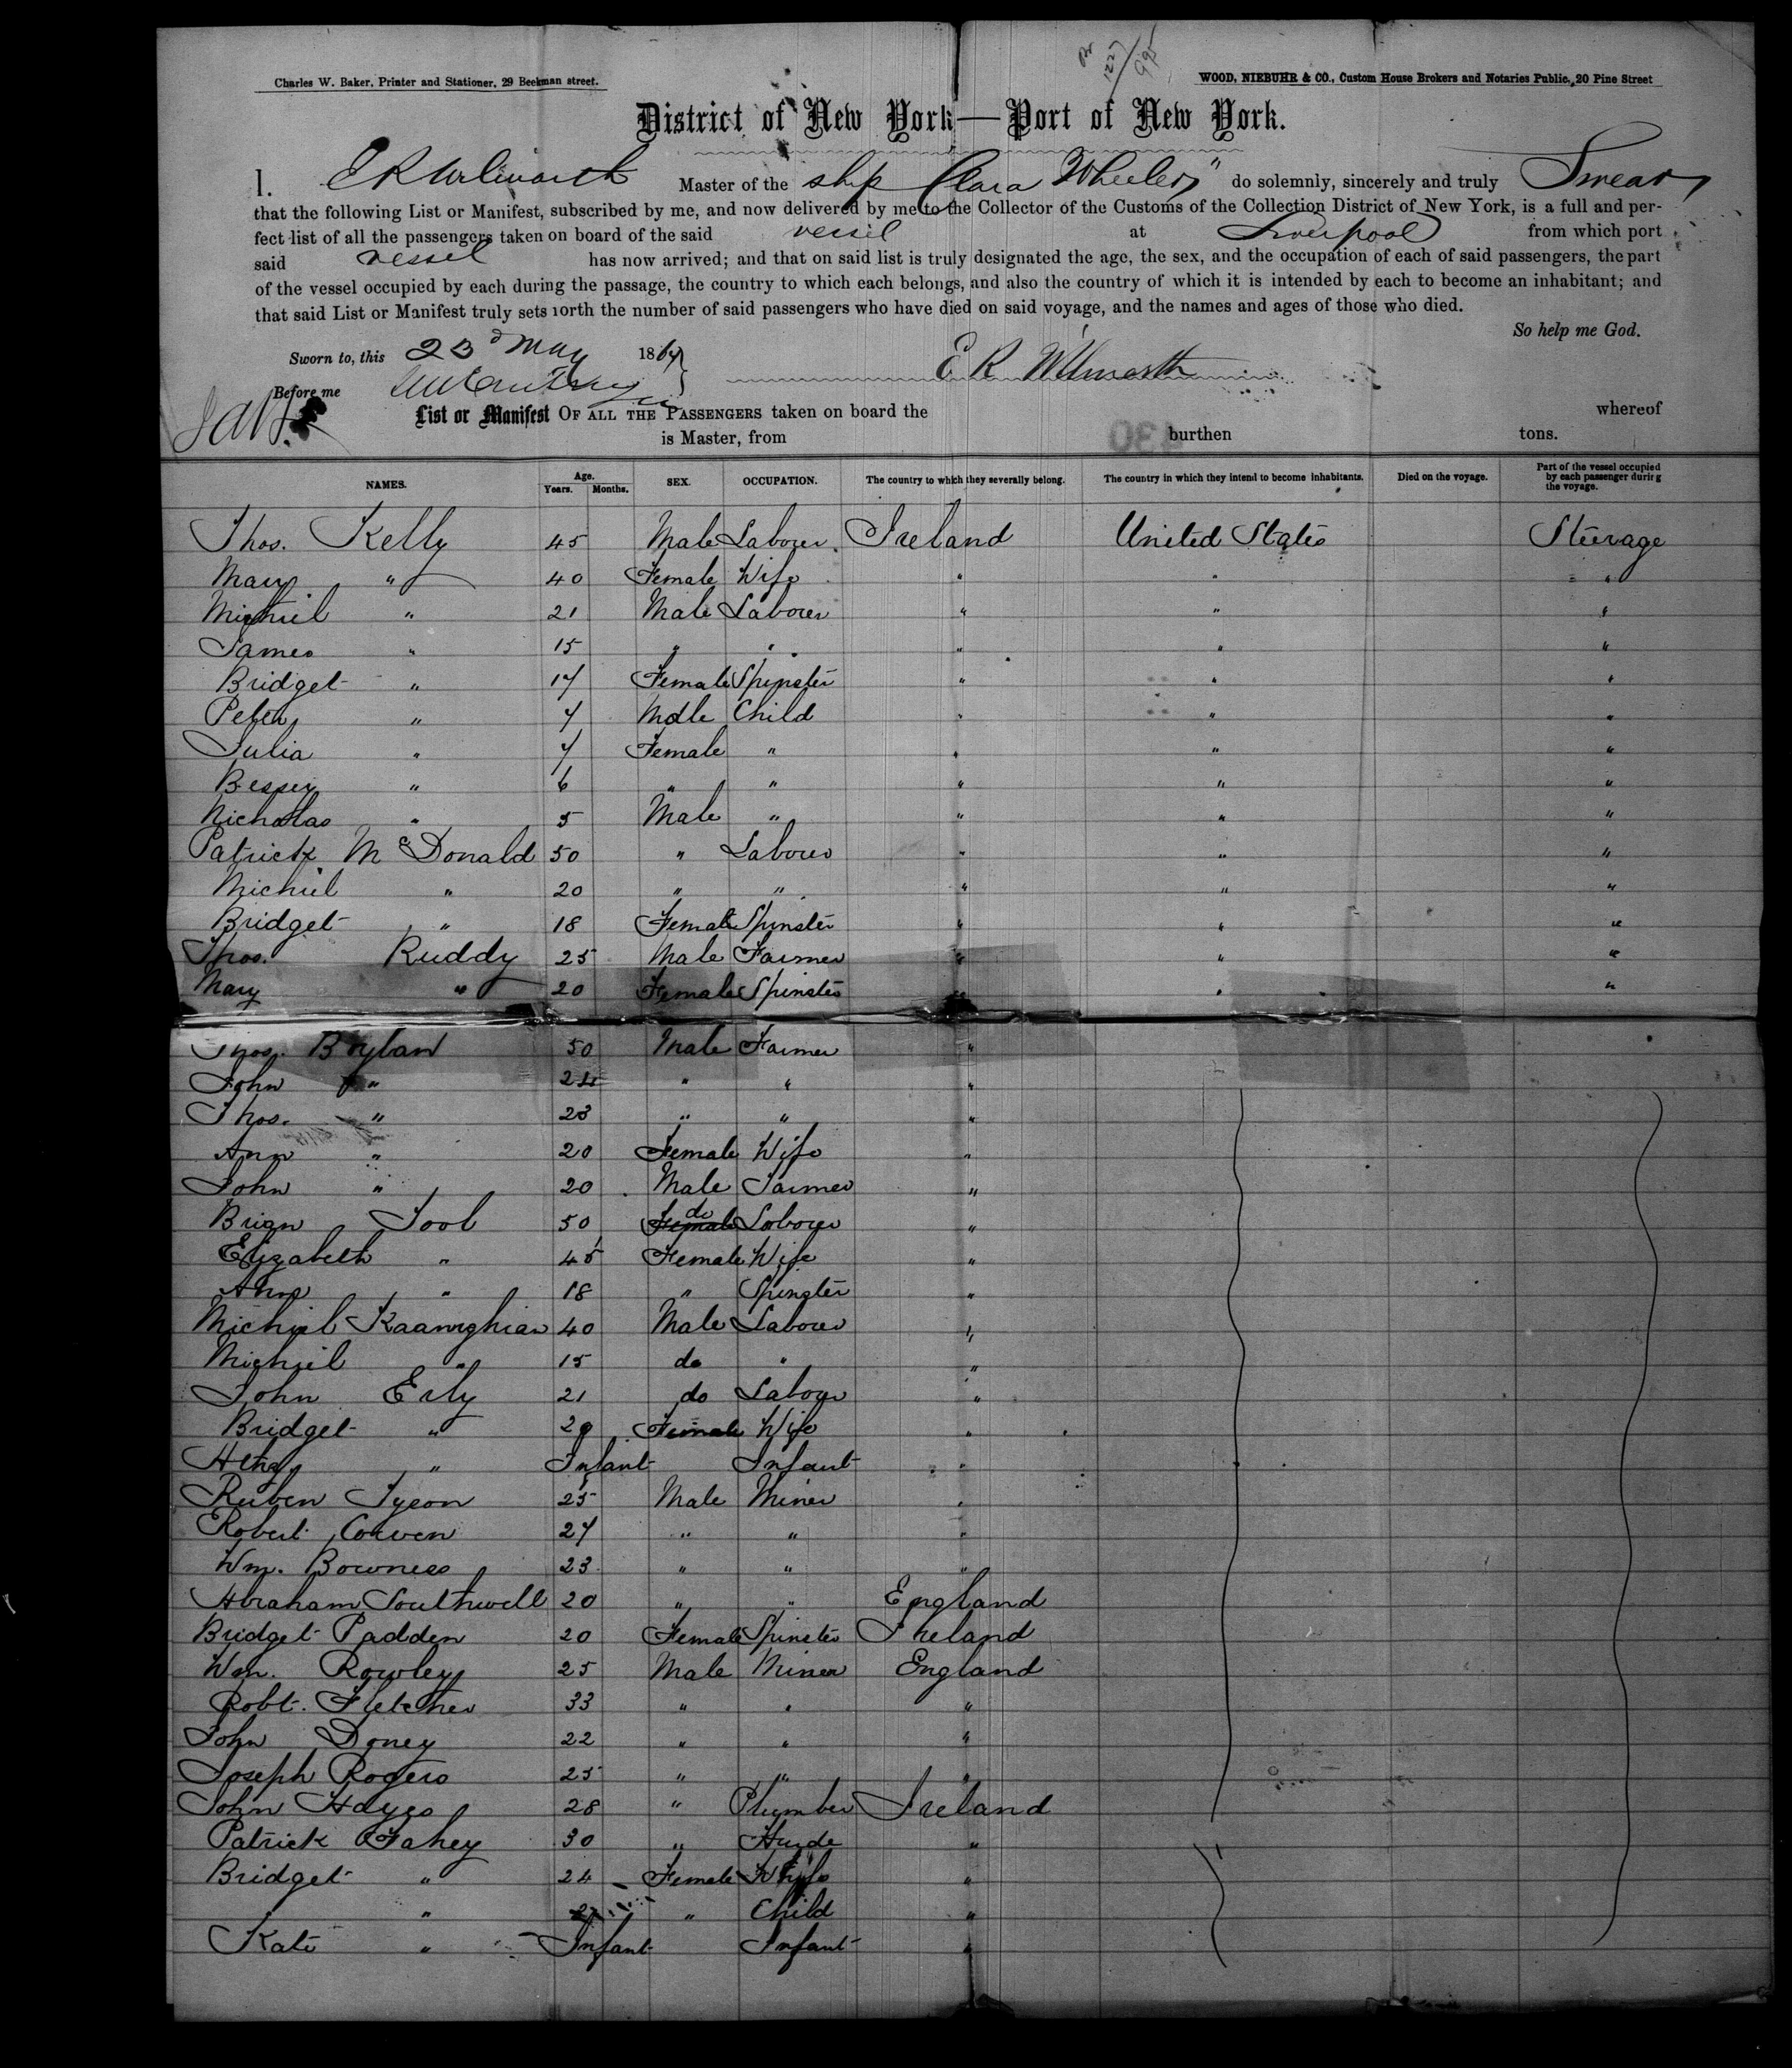 Charles W. Baker, Printer and Stationer, 29 Beekman street.
WOOD, NIEBUHR & CO., Custom House Brokers and Notaries Public, 20 Pine Street
District of New York—Port of New York.
I. E R Wilmarth Master of the ship Clara Wheeler" do solemnly, sincerely and truly Swear
that the following List or Manifest, subscribed by me, and now delivered by me to the Collector of the Customs of the Collection District of New York, is a full and per-
fect list of all the passengers taken on board of the said vessel at Liverpool from which port
said vessel has now arrived; and that on said list is truly designated the age, the sex, and the occupation of each of said passengers, the part
of the vessel occupied by each during the passage, the country to which each belongs, and also the country of which it is intended by each to become an inhabitant; and
that said List or Manifest truly sets forth the number of said passengers who have died on said voyage, and the names and ages of those who died.
So help me God.
Sworn to, this 23d May 186
Before me
E R Wilmarth
List or Manifest OF ALL THE PASSENGERS taken on board the whereof
is Master, from burthen tons.
NAMES. Age. Years. Months. SEX. OCCUPATION. The country to which they severally belong. The country in which they intend to become inhabitants. Died on the voyage. Part of the vessel occupied by each passenger during the voyage.
Thos. Kelly 45 Male Laborer Ireland United States Steerage
Mary " 40 Female Wife " " "
Michiel " 21 Male Laborer " " "
James " 15 " " " " "
Bridget " 14 Female Spinster " " "
Peter " 7 Male Child " " "
Julia " 7 Female " " " "
Bessey " 6 " " " " "
Nicholas " 5 Male " " " "
Patrick McDonald 50 " Laborer " " "
Michiel " 20 " " " " "
Bridget " 18 Female Spinster " " "
Thos. Ruddy 25 Male Farmer " " "
Mary " 20 Female Spinster " " "
Thos. Boylan 50 Male Farmer "
John " 24 " " "
Thos. " 23 " " "
Ann " 20 Female Wife "
John " 20 Male Farmer "
Brian Tool 50 do Laborer "
Elizabeth " 45 Female Wife "
Ann " 18 " Spinster "
Michiel 40 Male Laborer "
Michiel " 15 do " "
John Erly 21 do Laborer "
Bridget " 20 Female Wife "
" Infant Infant "
Ruben Tyson 25 Male Miner "
Robert Corven 27 " " "
Wm. Bowness 23 " " "
Abraham Southwell 20 " " England
Bridget Padden 20 Female Spinster Ireland
Wm. Rowley 25 Male Miner England
Robt. Fletcher 33 " " "
John Doney 22 " " "
Joseph Rogers 25 " " "
John Hayes 28 " Plumber Ireland
Patrick Fahey 30 " "
Bridget " 24 Female Wife "
" 2 " Child "
Kate " Infant Infant "